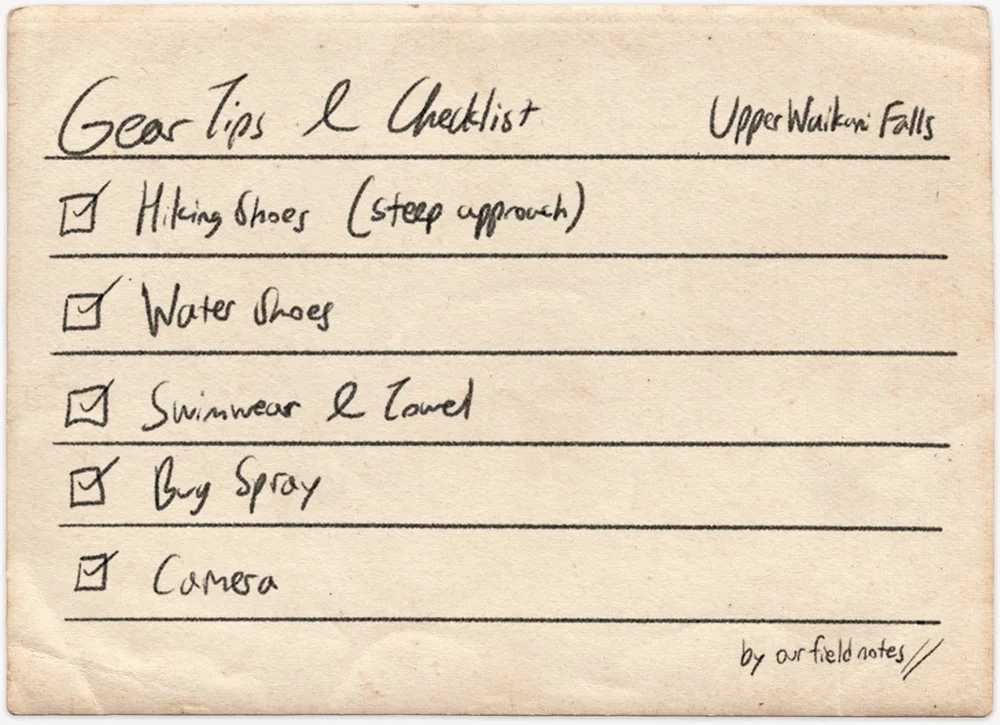 Gear Tips & Checklist Upper Waikani Falls
Hiking Shoes (steep approach)
Water Shoes
Swimwear & Towel
Bug Spray
Camera
by ourfieldnotes//